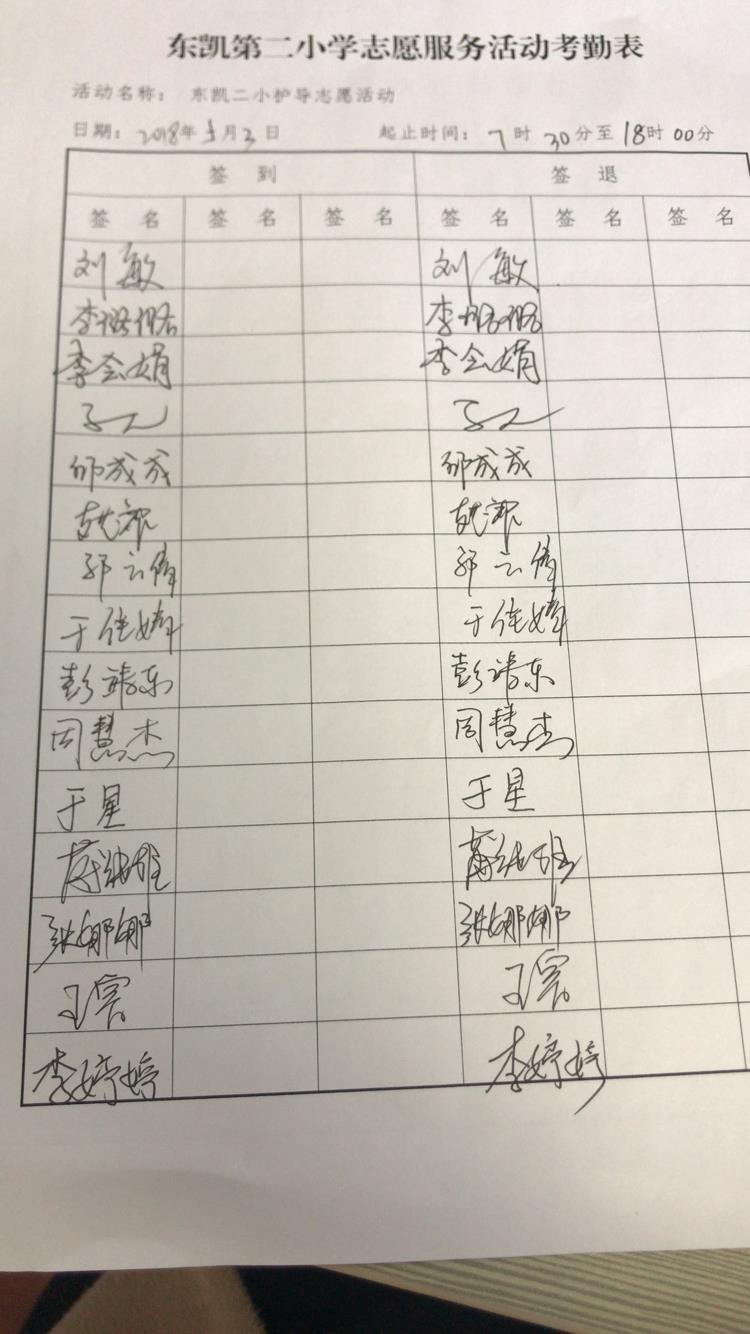 东凯第二小学志愿服务活动考勤表
活动名称： 东凯二小护导志愿活动
日期： 2018年 月 日 起止时间： 7时30分至18时00分
签 到 签 退
签 名 签 名 签 名 签 名 签 名 签 名
刘敏 刘敏
李 李
李会娟 李会娟
邹成成 邹成成
郭云倩 郭云倩
于佳婧 于佳婧
彭靖东 彭靖东
周慧杰 周慧杰
于星 于星
张娜娜 张娜娜
王 王
李婷婷 李婷婷